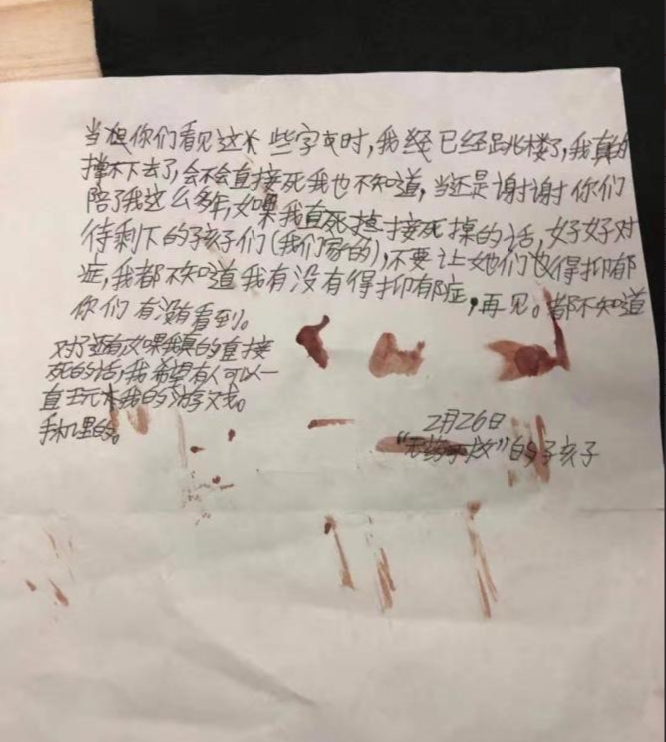 当但你们看见这些字时，我经已经跳楼了，我真的
撑不下去了，会不会直接死我也不知道，当还是谢谢你们
陪了我这么多年，如果我直死接死掉的话，好好对
待剩下的孩子们（我们家的），不要让她们也得抑郁
症，我都不知道我有没有得抑郁症，再见。都不知道
你们有没有看到。
对了还有如果我真的直接
死的话，我希望有人可以一
直玩我的游戏。
手机里的。
2月26日
“无药可救”的孩子